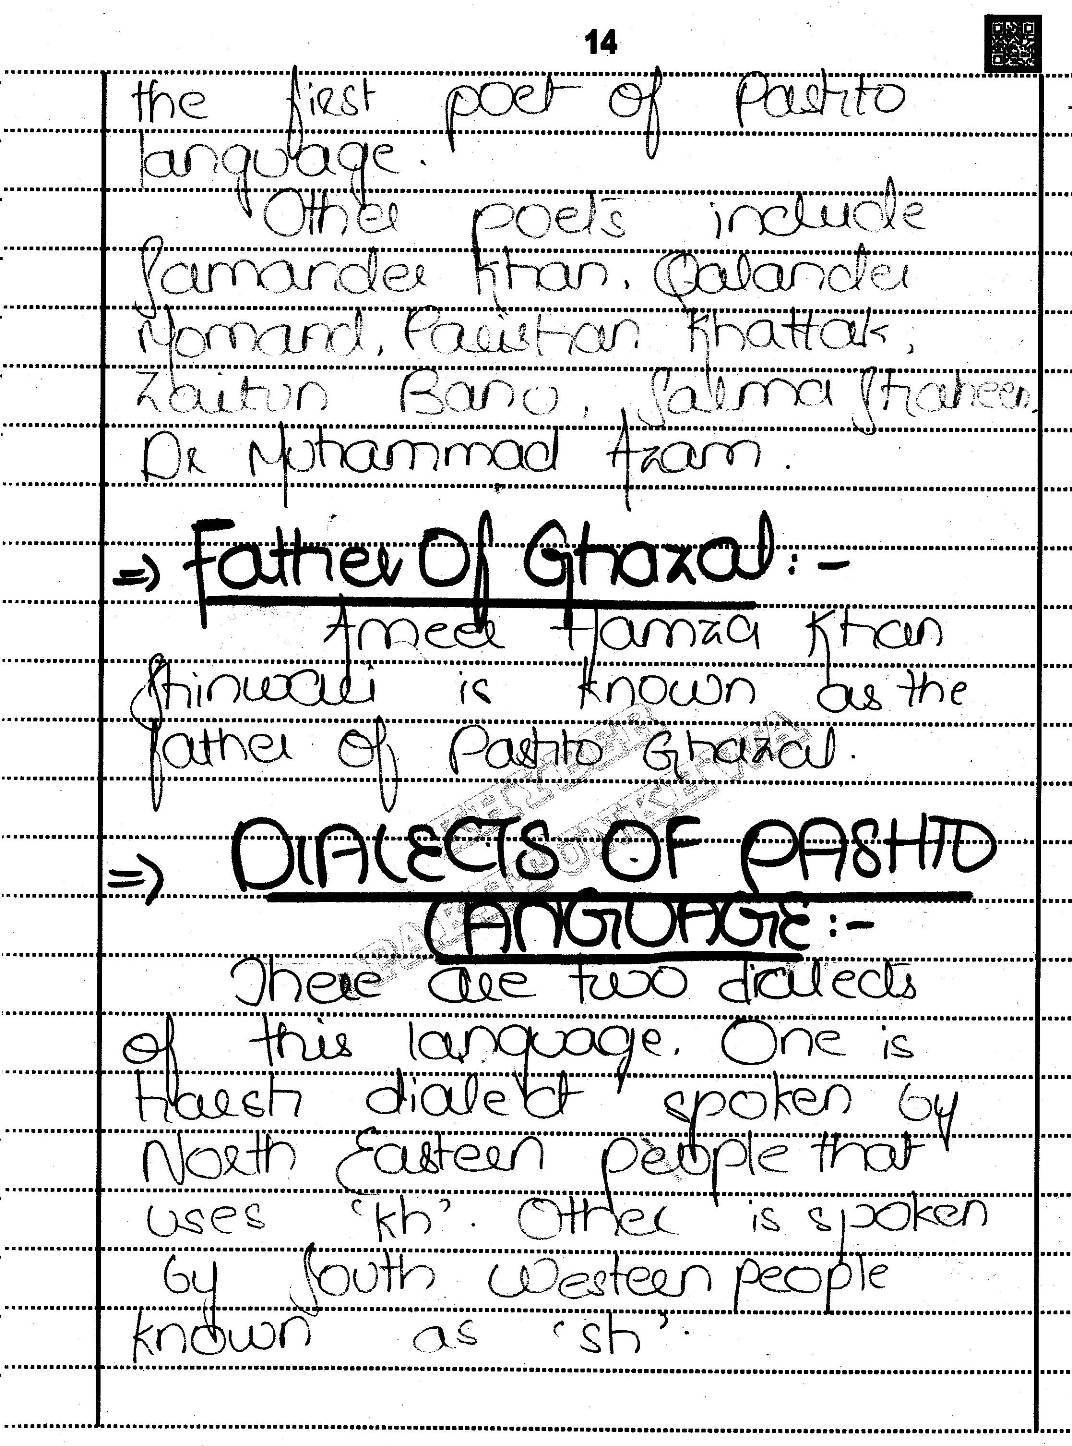 14
the first poet of Pashto
language.
Other poets include
Samander Khan, Qalander
Momand, Parishan Khattak,
Zaitun Bano, Salma Shaheen,
Dr Muhammad Azam.
=> Father Of Ghazal:-
Ameer Hamza Khan
Shinwari is known as the
father Of Pashto Ghazal.
=> DIALECTS OF PASHTO
LANGUAGE:-
There are two dialects
of this language. One is
harsh dialect spoken by
North Eastern people that
uses 'kh'. Other is spoken
by South Western people
known as 'sh'.
KHYBER
PAKHTUNKHWA